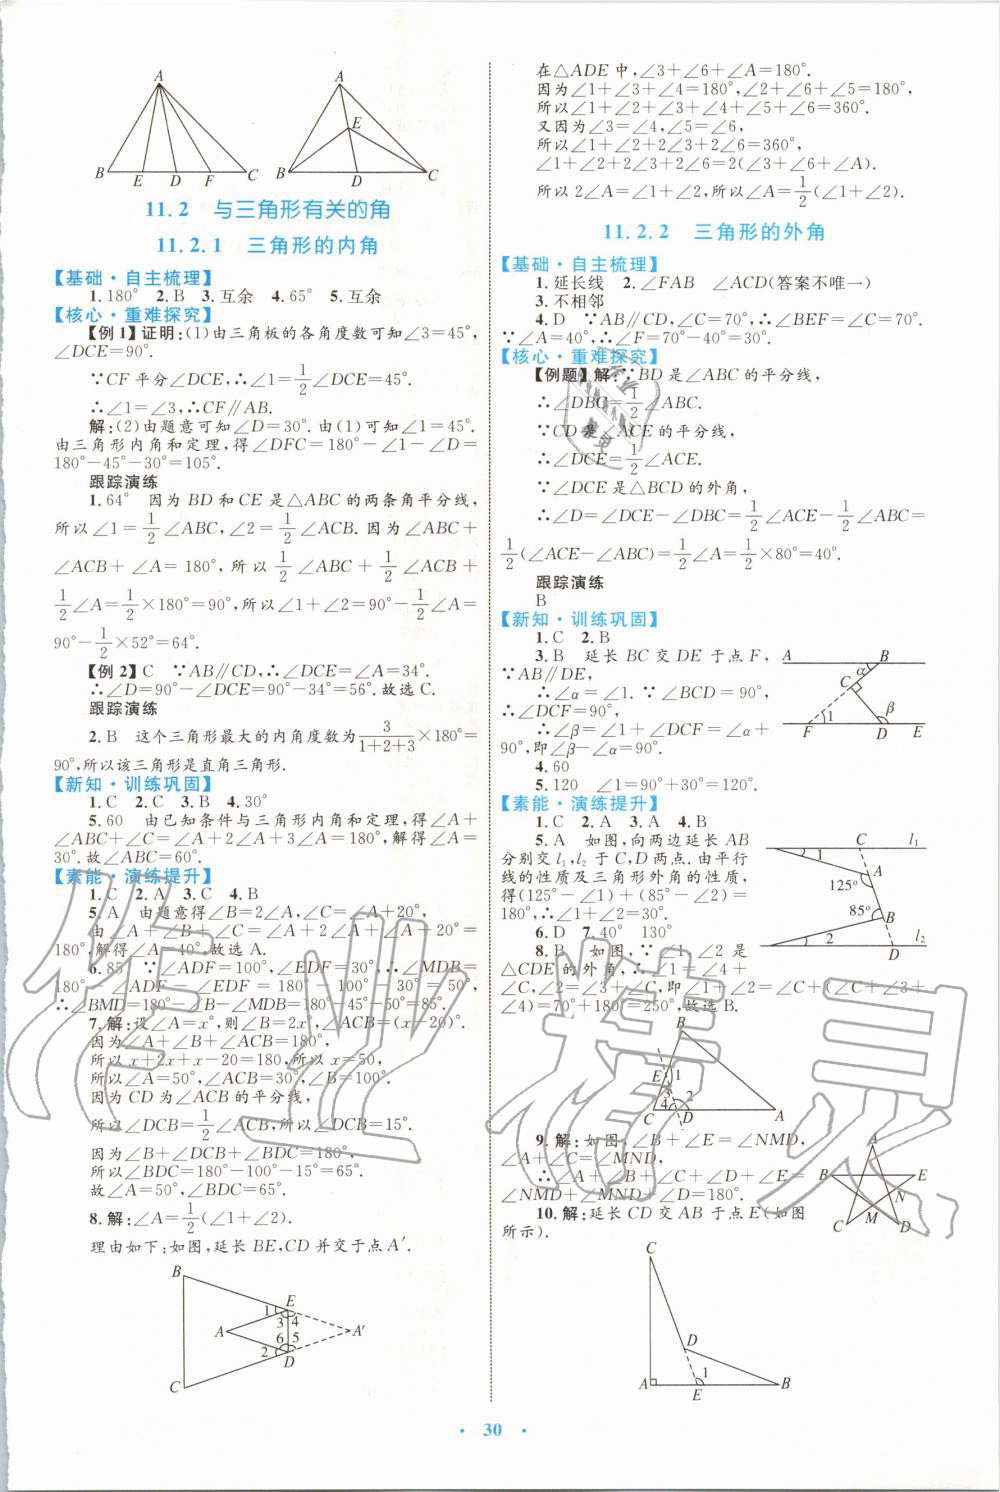 A
B E D F C
A
E
B D C
11.2　与三角形有关的角
11.2.1　三角形的内角
【基础·自主梳理】
1. 180°　2. B　3. 互余　4. 65°　5. 互余
【核心·重难探究】
【例1】证明:(1)由三角板的各角度数可知∠3=45°,
∠DCE=90°.
∵CF平分∠DCE,∴∠1=1/2∠DCE=45°.
∴∠1=∠3,∴CF∥AB.
解:(2)由题意可知∠D=30°.由(1)可知∠1=45°.
由三角形内角和定理,得∠DFC=180°-∠1-∠D=
180°-45°-30°=105°.
跟踪演练
1. 64°　因为BD和CE是△ABC的两条角平分线,
所以∠1=1/2∠ABC,∠2=1/2∠ACB.因为∠ABC+
∠ACB+∠A=180°,所以1/2∠ABC+1/2∠ACB+
1/2∠A=1/2×180°=90°,所以∠1+∠2=90°-1/2∠A=
90°-1/2×52°=64°.
【例2】C　∵AB∥CD,∴∠DCE=∠A=34°.
∴∠D=90°-∠DCE=90°-34°=56°.故选C.
跟踪演练
2. B　这个三角形最大的内角度数为3/(1+2+3)×180°=
90°,所以该三角形是直角三角形.
【新知·训练巩固】
1. C　2. C　3. B　4. 30°
5. 60　由已知条件与三角形内角和定理,得∠A+
∠ABC+∠C=∠A+2∠A+3∠A=180°,解得∠A=
30°.故∠ABC=60°.
【素能·演练提升】
1. C　2. A　3. C　4. B
5. A　由题意得∠B=2∠A,∠C=∠A+20°,
由∠A+∠B+∠C=∠A+2∠A+∠A+20°=
180°,解得∠A=40°.故选A.
6. 85　∵∠ADF=100°,∠EDF=30°,∴∠MDB=
180°-∠ADF-∠EDF=180°-100°-30°=50°,
∴∠BMD=180°-∠B-∠MDB=180°-45°-50°=85°.
7. 解:设∠A=x°,则∠B=2x°,∠ACB=(x-20)°.
因为∠A+∠B+∠ACB=180°,
所以x+2x+x-20=180,所以x=50,
所以∠A=50°,∠ACB=30°.
因为CD为∠ACB的平分线,
所以∠DCB=1/2∠ACB,所以∠DCB=15°.
因为∠B+∠DCB+∠BDC=180°,
所以∠BDC=180°-100°-15°=65°.
故∠A=50°,∠BDC=65°.
8. 解:∠A=1/2(∠1+∠2).
理由如下:如图,延长BE,CD并交于点A′.
B
1 E
3 4
A A′
6 5
2 D
C
在△ADE中,∠3+∠6+∠A=180°.
因为∠1+∠3+∠4=180°,∠2+∠6+∠5=180°,
所以∠1+∠2+∠3+∠4+∠5+∠6=360°.
又因为∠3=∠4,∠5=∠6,
所以∠1+∠2+2∠3+2∠6=360°,
∠1+∠2+2∠3+2∠6=2(∠3+∠6+∠A).
所以2∠A=∠1+∠2,所以∠A=1/2(∠1+∠2).
11.2.2　三角形的外角
【基础·自主梳理】
1. 延长线　2. ∠FAB　∠ACD(答案不唯一)
3. 不相邻
4. D　∵AB∥CD,∠C=70°,∴∠BEF=∠C=70°.
∵∠A=40°,∴∠F=70°-40°=30°.
【核心·重难探究】
【例题】解:∵BD是∠ABC的平分线,
∴∠DBC=1/2∠ABC.
∵CD是∠ACE的平分线,
∴∠DCE=1/2∠ACE.
∵∠DCE是△BCD的外角,
∴∠D=∠DCE-∠DBC=1/2∠ACE-1/2∠ABC=
1/2(∠ACE-∠ABC)=1/2∠A=1/2×80°=40°.
跟踪演练
B
【新知·训练巩固】
1. C　2. B
3. B　延长BC交DE于点F,
∵AB∥DE,
∴∠α=∠1.∵∠BCD=90°,
∴∠DCF=90°,
∴∠β=∠1+∠DCF=∠α+
90°,即∠β-∠α=90°.
A B
α
C
1 β
F D E
4. 60
5. 120　∠1=90°+30°=120°.
【素能·演练提升】
1. C　2. A　3. A　4. B
5. A　如图,向两边延长AB
分别交l₁,l₂于C,D两点.由平行
线的性质及三角形外角的性质,
得(125°-∠1)+(85°-∠2)=
180°,∴∠1+∠2=30°.
C l₁
1
A
125°
85° B
2 l₂
D
6. D　7. 40°　130°
8. B　如图,∵∠1,∠2是
△CDE的外角,∴∠1=∠4+
∠C,∠2=∠3+∠C,即∠1+∠2=∠C+(∠C+∠3+
∠4)=70°+180°=250°.故选B.
B
E 1
3
4 2
C D A
9. 解:如图,∠B+∠E=∠NMD,
∠A+∠C=∠MND,
∴∠A+∠B+∠C+∠D+∠E=
∠NMD+∠MND+∠D=180°.
A
B E
N
M
C D
10. 解:延长CD交AB于点E(如图
所示).
C
D
1
A E B
· 30 ·
作业精灵